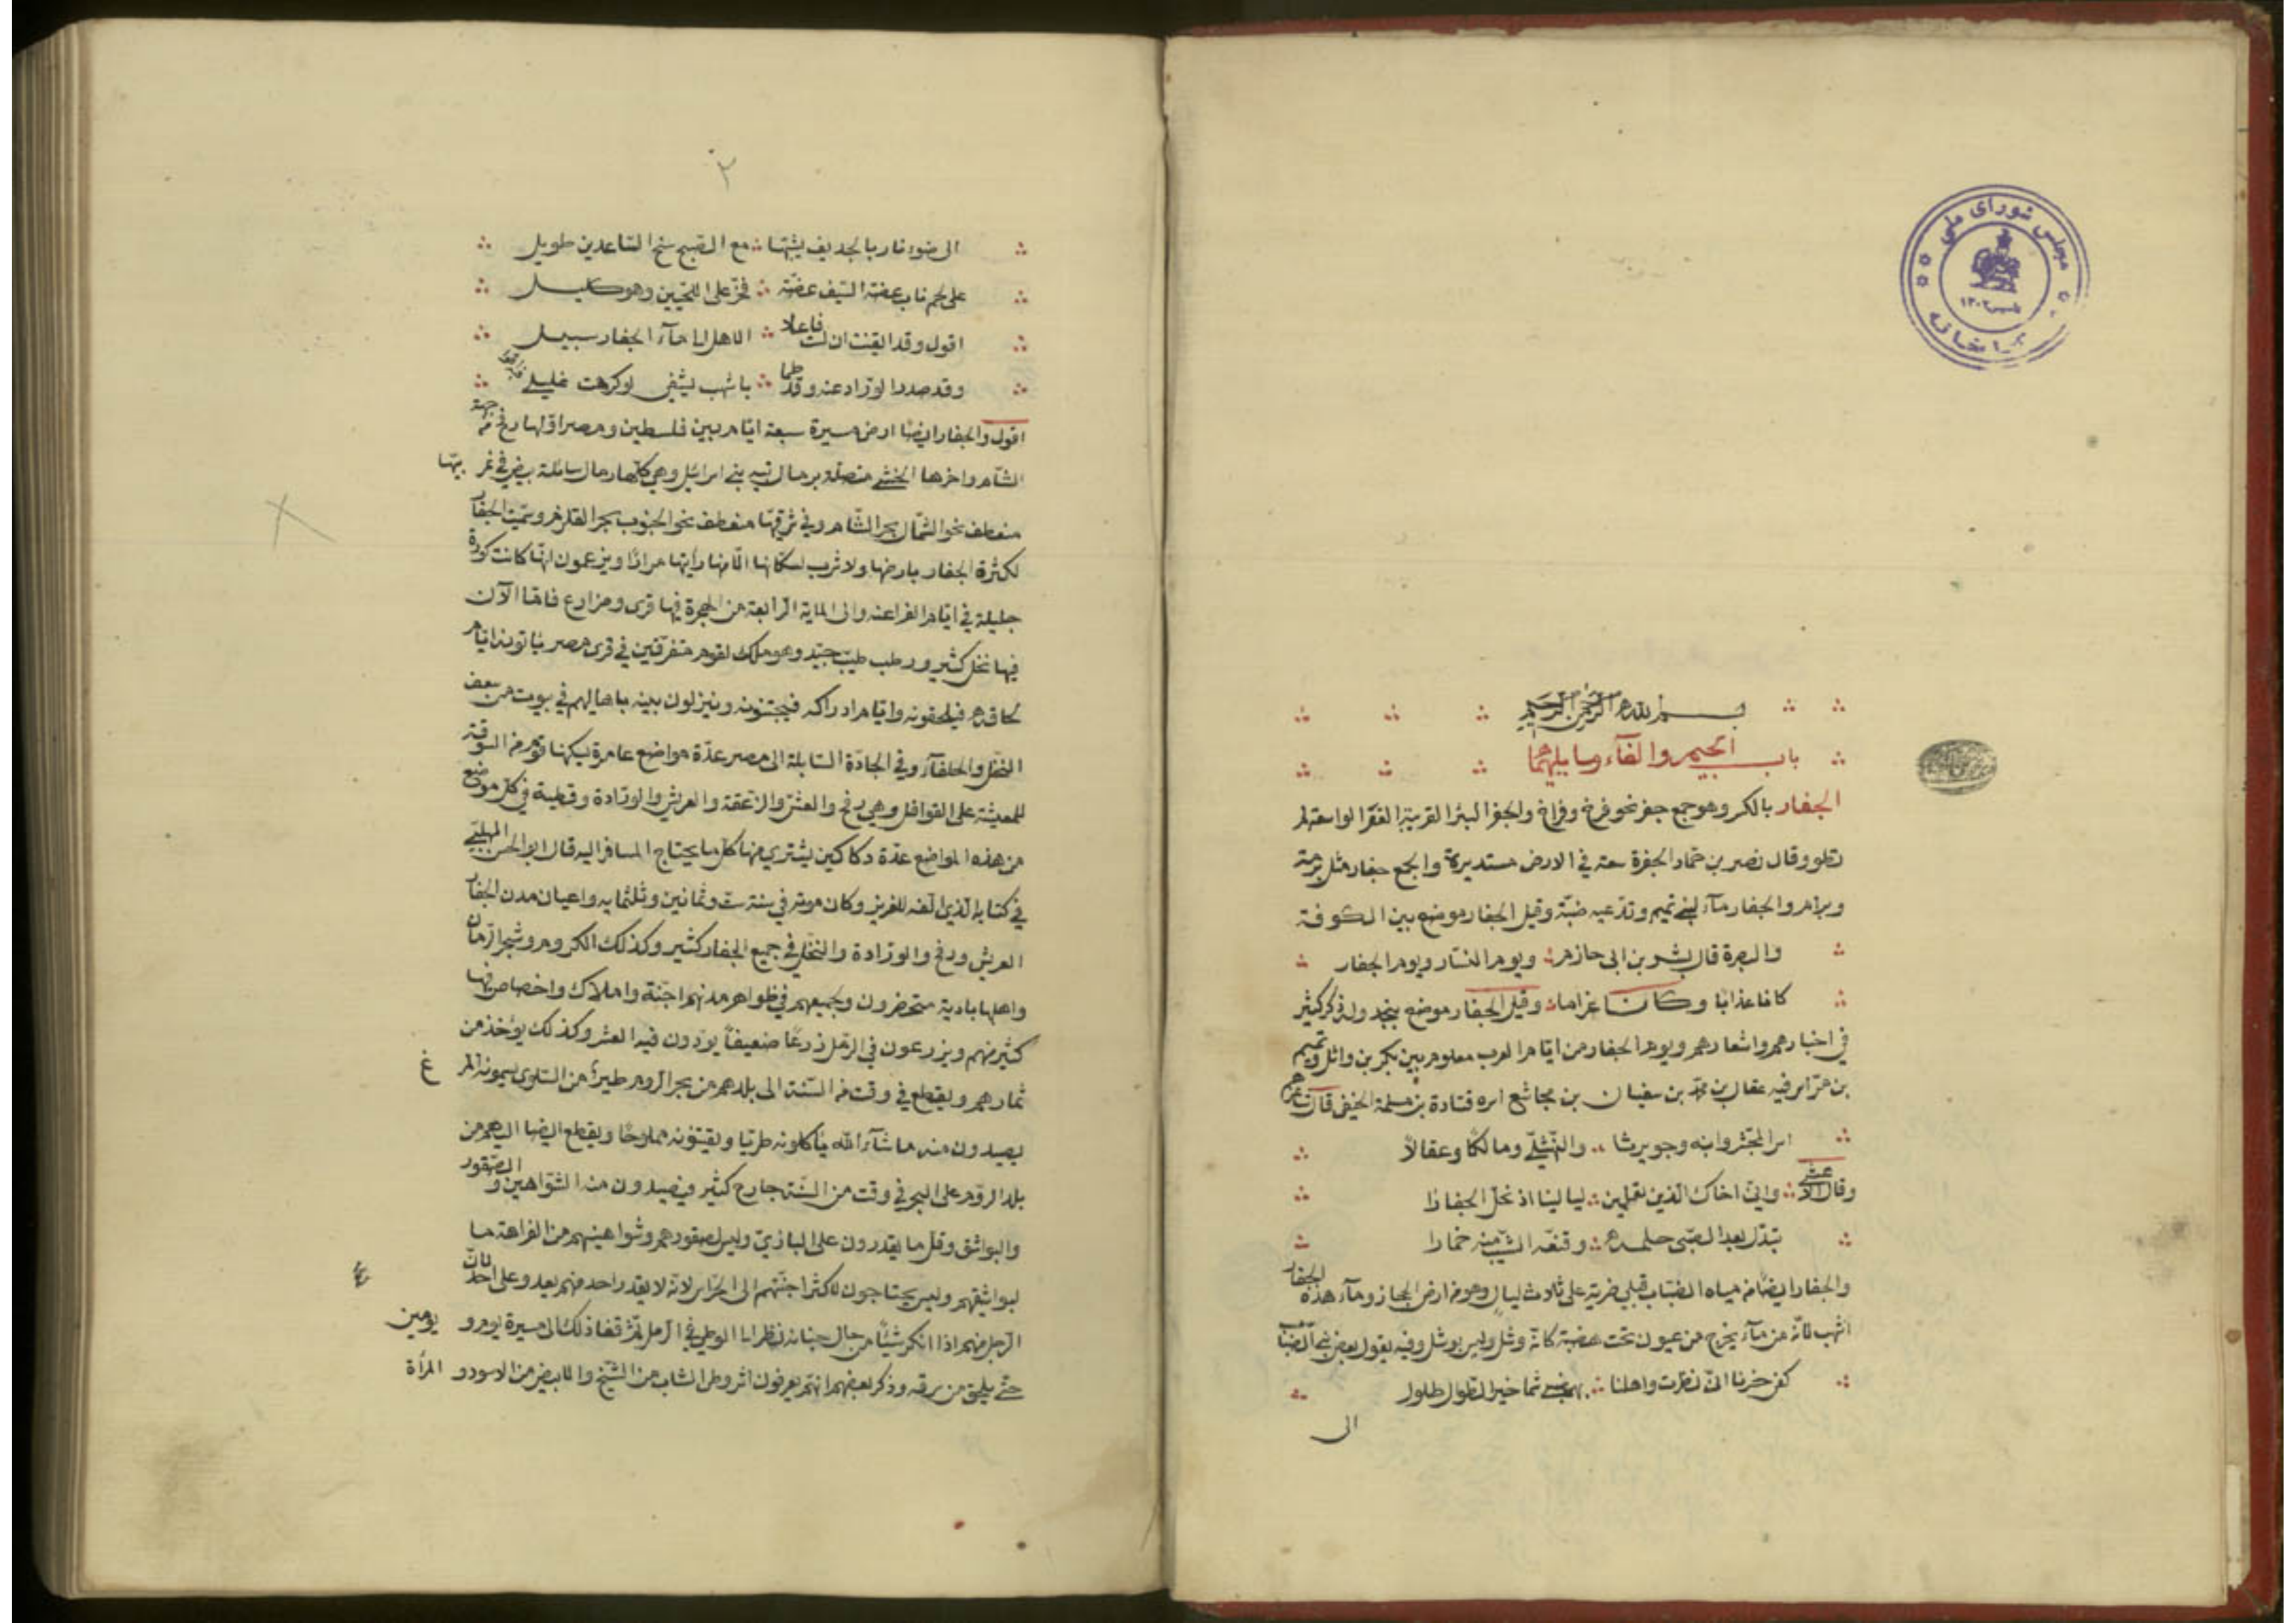 مجلس شورای ملی
تأسیس ۱۳۰۲
کتابخانه
بسم الله الرحمن الرحيم
باب الجيم والفاء وما يليهما
الجفار بالكسر وهو جمع جفر نحو فرخ وفراخ والجفر البئر القريبة القعر الواسعة لم
تطو وقال نصر بن حماد الجفرة سعة في الارض مستديرة والجمع جفار مثل برمة
وبرام والجفار مآء لبني تميم وتدعيه ضبة وقيل الجفار موضع بين الكوفة
والبصرة قال بشر بن ابى حازم ويوم النسار ويوم الجفار
كانا عذابا وكانا غراما وقيل الجفار موضع بنجد وله ذكر كثير
في اخبارهم واشعارهم ويوم الجفار من ايام العرب معلوم بين بكر بن وائل وتميم
بن مر اسر فيه عقال بن محمد بن سفيان بن مجاشع اسره قتادة بن مسلمة الحنفى قال شاعرهم
اسر المجشر وابنه وحويرثا والنهشلي ومالكا وعقالا
وقال الاعشى وانّ اخاك الذين تعلمين ليالينا اذ نحل الجفارا
تبدل بعد الصبى حلمه وقنعه الشيب منه خمارا
والجفار ايضا من مياه الضباب قبلي ضرية على ثلاث ليال وهو من ارض الحجاز ومآء هذه الجفار
اشبه لانّه من مآء يخرج من عيون تحت هضبة كانّه وشل وليس بوشل وفيه يقول بعض بنى الضباب
كفى حزنا انى نظرت واهلنا بهضبي شماخير الطوال طلول
الى
٢
الى ضوء نار بالحديف يشبها مع الصبح سنح الساعدين طويل
على لحم ناب عضه السيف عضة فخر على اللحيين وهو كليل
اقول وقد ايقنت ان لست فاعلا الا هل الى مآء الجفار سبيل
وقد صدر الوراد عنه وقد طما باشهب يشفى لو كرهت غليلي
اقول والجفار ايضا ارض مسيرة سبعة ايام بين فلسطين ومصر اولها رفح من جهة
الشام واخرها الخشبي متصلة برمال تيه بنى اسرائيل وهي كلها رمال سائلة بيض في غربيها
منعطف نحو الشمال بحر الشام وفي شرقيها منعطف نحو الجنوب بحر القلزم وسميت الجفار
لكثرة الجفار بارضها ولا شرب لسكانها الا منها رأيتها مرارا ويزعمون انها كانت كورة
جليلة في ايام الفراعنه والى المايه الرابعة من الهجرة فيها قرى ومزارع فاما الآن
فيها نخل كثير ورطب طيب جيد وهو ملك لقوم متفرقين في قرى مصر يأتونه ايام
لحاقه فيلحقونه وايام ادراكه فيجتنونه وينزلون بينه باهاليهم في بيوت من سعف
النخل والحلفآء وفي الجادة السابلة الى مصر عدة مواضع عامرة يسكنها قوم من السوقة
للمعيشة على القوافل وهي رفح والعش والزعقة والعريش والورادة وقطية في كل موضع
من هذه المواضع عدة دكاكين يشترى منها كل ما يحتاج المسافر اليه قال ابو الحسن المهلبي
في كتابه الذي الفه للعزيز وكان موته في سنة ست وثمانين وثلثمايه واعيان مدن الجفار
العريش ورفح والورادة والنخل في جميع الجفار كثير وكذلك الكروم وشجر الرمان
واهلها بادية متحضرون ولجميعهم في ظواهر مدنهم اجنة واملاك واخصاص فيها
كثير منهم ويزرعون في الرمل زرعا ضعيفا يؤدون فيه العشر وكذلك يؤخذ من
ثمارهم ويقطع في وقت من السنة الى بلدهم من بحر الروم طيرا من السلوى يسمونه المرغ
يصيدون منه ما شآء الله يأكلونه طريا ويقتنونه مملوحا ويقطع ايضا اليهم من
بلد الروم على البحر في وقت من السنة جارح كثير فيصيدون منه الشواهين والصقور
والبواشق وقل ما يقدرون على البازي وليس لصقورهم وشواهينهم من الفراهة ما
لبواشقهم وليس يحتاجون لكثرا جنتهم الى الحراس لانه لا يقدر احد منهم يعدو على احد لان
الرجل منهم اذا انكر شيئا من حال جنانه نظر الى الوطئ في الرمل ثم قفا ذلك الى مسيرة يوم ويومين
حتى يلحق من سرقه وذكر بعضهم انهم يعرفون اثر وطئ الشاب من الشيخ والابيض من الاسود والمرأة